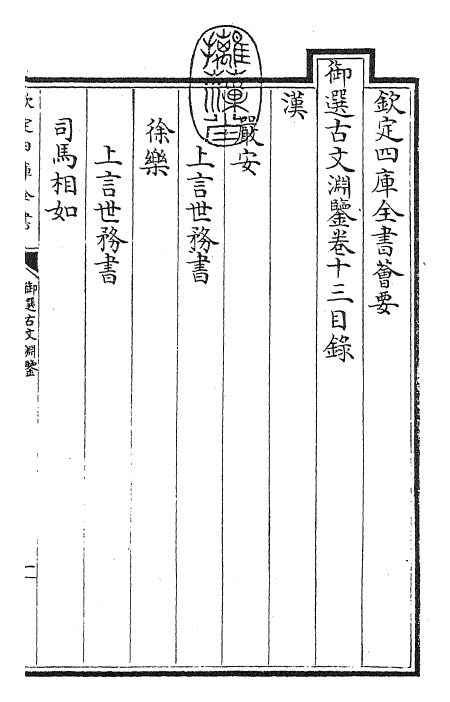 欽定四庫全書薈要
御選古文淵鑒卷十三目錄
漢
嚴安
上言世務書
徐樂
上言世務書
司馬相如
欽定四庫全書
御選古文淵鑒
一